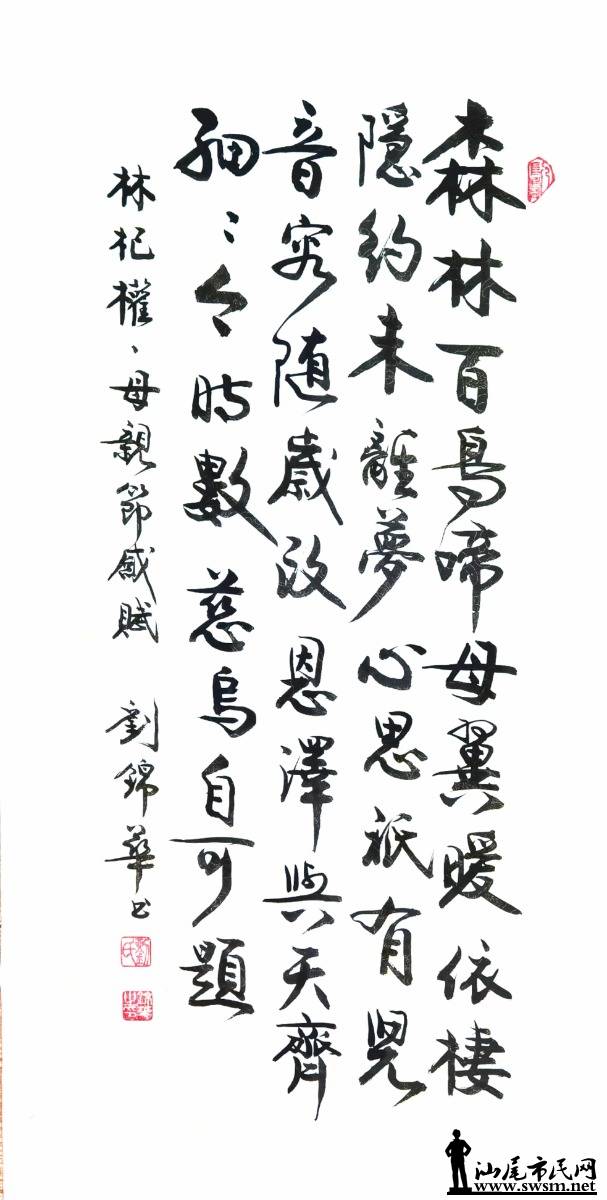 森林百鳥啼母翼暖依棲
隱約未離夢心思祇有兒
音容随歲改恩澤與天齊
細〻今時數慈烏自可題
林杞權、母親節感賦 劉錦華书
汕尾市民网
www.swsm.net